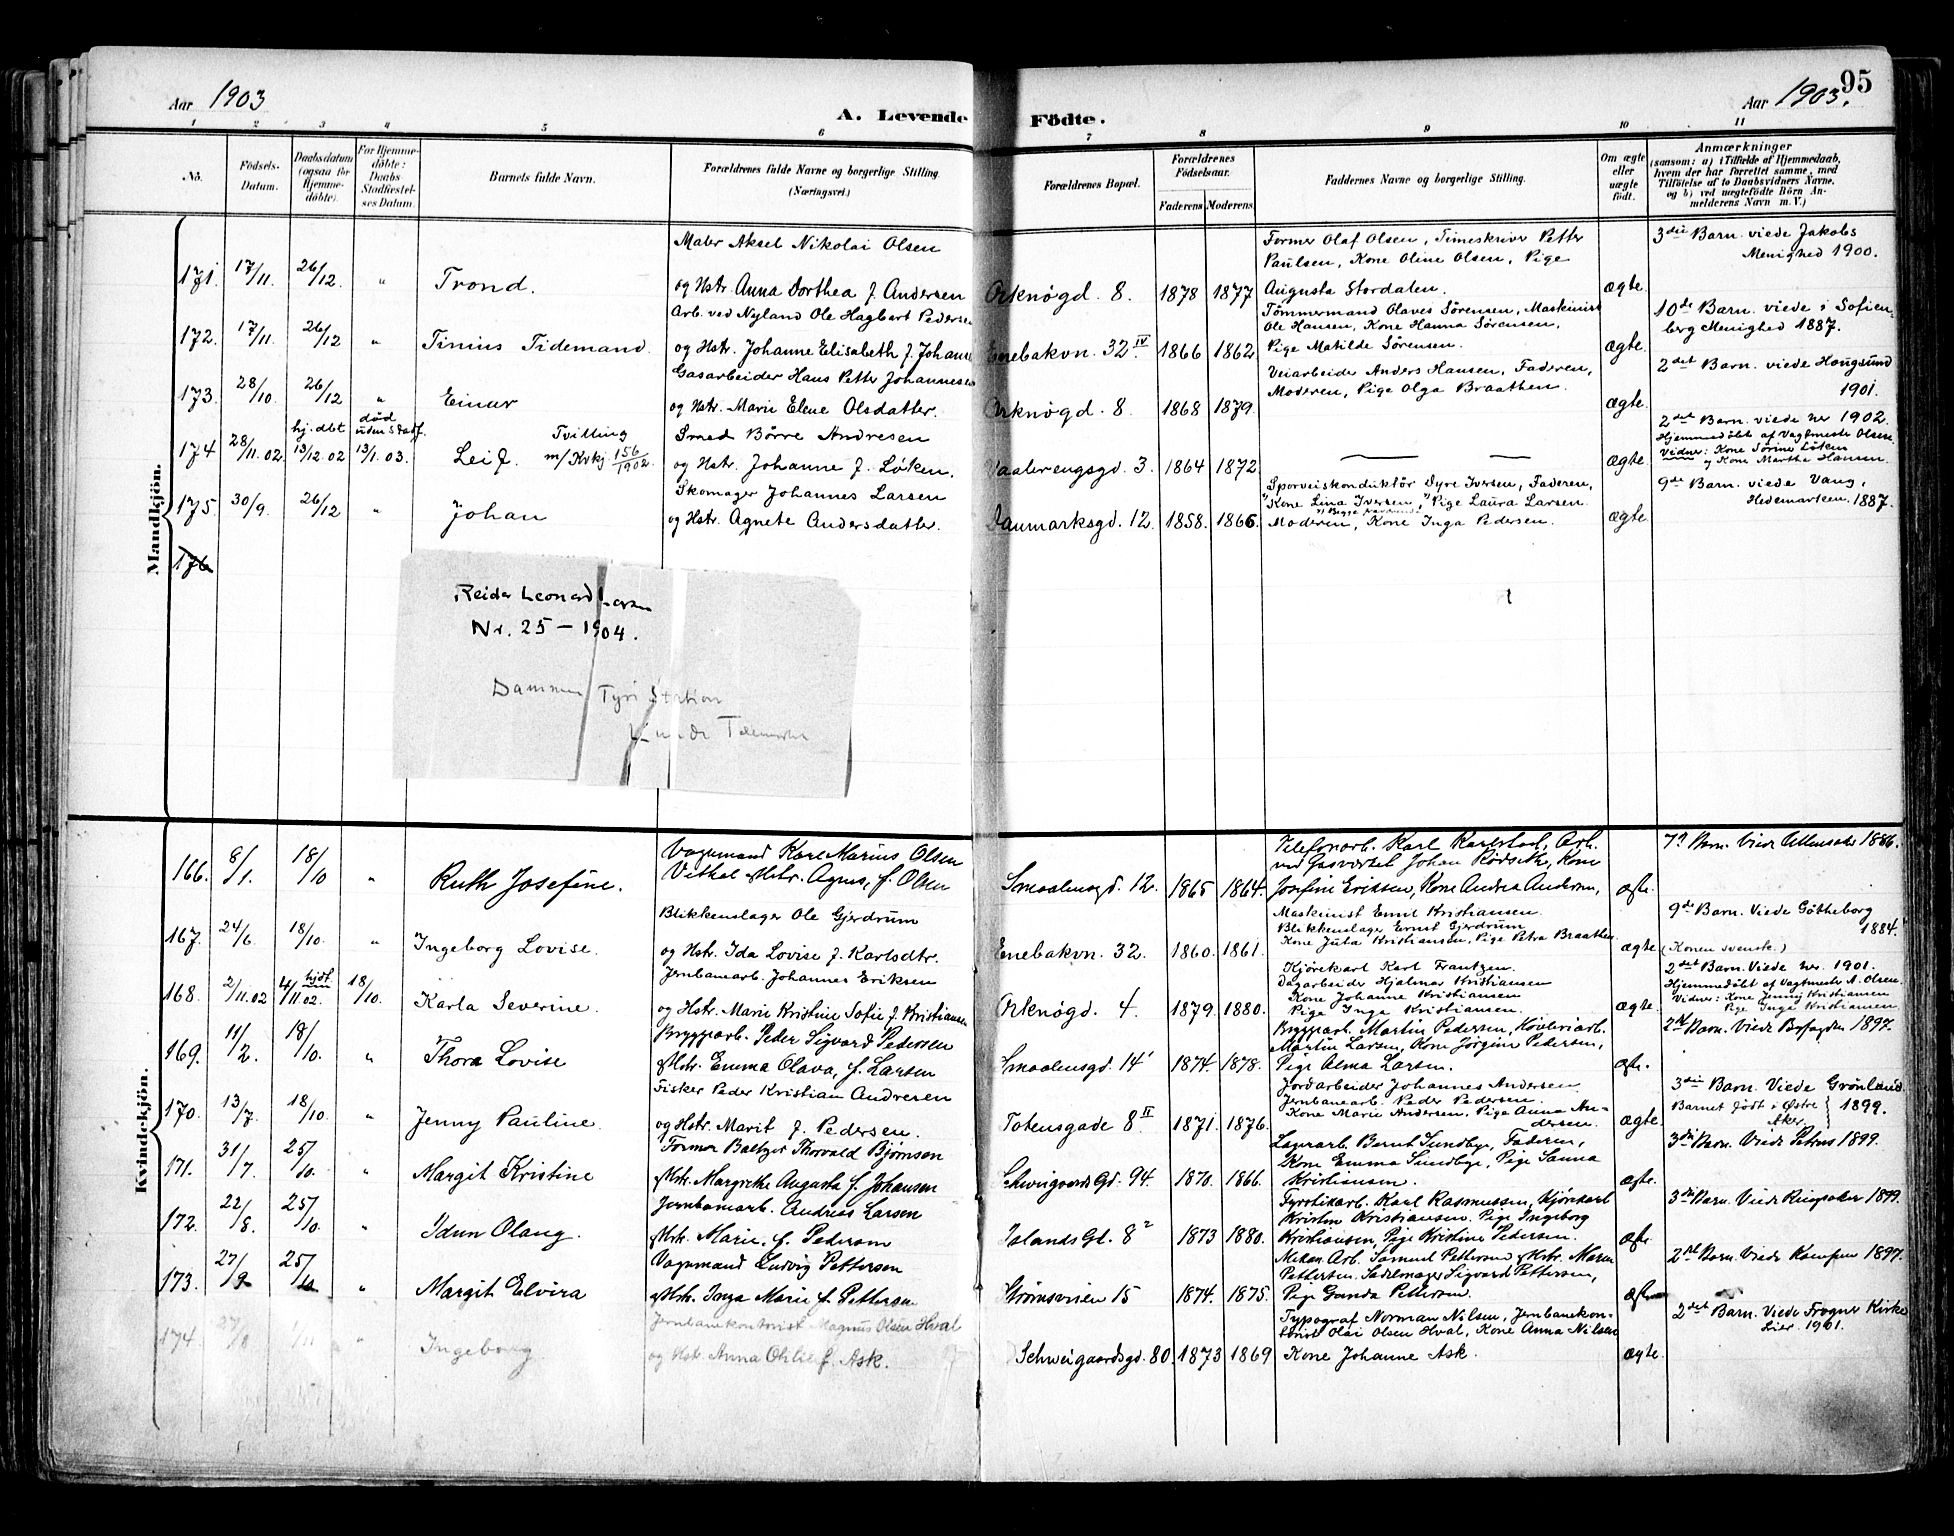 Aar 1903
A. Levende Födte.
Aar 1903.
95
1 2 3 4 5 6 7 8 9 10 11
No.
Födsels-Datum.
Daabsdatum (ogsaa for Hjemmedöbte).
For Hjemmedöbte: Daabs Stadfæstelses Datum.
Barnets fulde Navn.
Forældrenes fulde Navne og borgerlige Stilling. (Næringsvei.)
Forældrenes Bopæl.
Forældrenes Födselsaar.
Faderens Moderens
Faddernes Navne og borgerlige Stilling.
Om ægte eller uægte födt.
Anmærkninger
(saasom: a) i Tilfælde af Hjemmedaab, hvem der har forrettet samme, med Tilföielse af to Daabsvidners Navne, og b) ved uægtefödte Börn Anmelderens Navn m. V.)
Mandkjön.
171 17/11. 26/12. " Trond.
Maler Aksel Nikolai Olsen
og Hstr. Anna Dorthea f. Andersen
Orknögd. 8. 1878 1877
Former Olaf Olsen, Timeskriver Petter
Paulsen, Kone Oline Olsen, Pige
Augusta Stordalen.
ægte
3die Barn. viede Jakobs
Menighed 1900.
172. 17/11. 26/12 " Tinius Tidemand.
Arb. ved Nyland Ole Hagbart Pedersen
og Hstr. Johanne Elisabeth f. Johans
Enebakvn. 32 IV 1866 1862
Tömmermand Olaves Sörensen, Maskinist
Ole Hansen, Kone Hanna Sörensen,
Pige Matilde Sörensen.
ægte.
10de Barn. viede i Sofien-
berg Menighed 1887.
173. 28/10. 26/12 " Einar
Gasarbeider Hans Petter Johannesen
og Hstr. Marie Elene Olsdatter.
Orknögd. 8. 1868 1879
Veiarbeider Anders Hansen, Faderen,
Moderen, Pige Olga Braathen.
ægte
2det Barn. viede Hougsund
1901.
174 28/11.02. hj. dbt 13/12.02 död uden stadf. 13/1.03. Leif. Tvilling
m/ Kvkj. 156/1902
Smed Börre Andresen
og Hstr. Johanne f. Löken.
Vaalerengsgd. 3. 1864 1872
ægte
2det Barn viede her 1902.
Hjemmedöbt af Vagtmester Olsen.
Vidner: Kone Sorine Löken
og Kone Marthe Hansen.
175. 30/9. 26/12 " Johan
Skomager Johannes Larsen
og Hstr. Agnete Andersdatter.
Danmarksgd. 12. 1858. 1866
Sporveiskonduktör Syre Iversen, Faderen,
Kone Lina Iversen, Pige Laura Larsen.
Moderen, Kone Inga Pedersen.
ægte
9de Barn. viede Vang,
Hedemarken. 1887.
176
Reidar Leonard Larsen
Nr. 25 – 1904.
Dammen Tyri Station
Kvindekjön.
166. 8/1. 18/10 " Ruth Josefine.
Vognmand Karl Marius Olsen
Vethal & Hstr. Agnes, f. Olsen
Smaalensgd. 12. 1865 1864.
Telefonarb. Karl Karlstad, Arb.
ved Gasværket Johan Rödseth, Kone
Josefine Eriksen, Kone Andrea Andersen,
ægte.
7de Barn. Viede 1886.
167. 24/6. 18/10. " Ingeborg Lovise.
Blikkenslager Ole Gjerdrum
og Hstr. Ida Lovise f. Karlsdtr.
Enebakvn. 32. 1860. 1861.
Maskinist Emil Kristiansen.
Blikkenslager Ernst Gjerdrum
Kone Juta Kristiansen, Pige Petra Braathen
ægte
9de Barn. Viede Götheborg
1884.
(Konen svensk.)
168. 2/11.02 4/11.02. hjdt 18/10. Karla Severine.
Jernbanearb. Johannes Eriksen
og Hstr. Marie Kristine Sofie f. Kristiansen
Orknögd. 4. 1879. 1880.
Kjörekarl Karl Frantzen.
Dagarbeider Hjalmar Kristiansen
Kone Johanne Kristiansen
Pige Inga Kristiansen
ægte.
2det Barn. Viede her. 1901.
Hjemmedöbt af Vagtmester A. Olsen.
Vidner: Kone Jenny Kristiansen
Pige Inga Kristiansen
169. 11/2. 18/10. " Thora Lovise
Bryggarb. Peder Sigvard Pedersen
& Hstr. Emma Olava, f. Larsen
Smaalensgd. 14 1874. 1878.
Bryggarb. Martin Pedersen, Höveriarb.
Martin Larsen, Kone Jörgine Pedersen,
Pige Alma Larsen.
ægte.
2det Barn. Viede 1897.
170. 13/7. 18/10. " Jenny Pauline.
Fisker Peder Kristian Andresen
og Hstr. Marit f. Pedersen.
Totensgade 8 II 1871. 1876.
Jordarbeider Johannes Andersen
Jernbanearb. Peder Pedersen.
Kone Marie Andersen. Pige Anna An-
dersen.
ægte.
3die Barn. Viede Grönland
Barnet födt i Östre
Aker. 1899.
171. 31/7. 25/10. " Margit Kristine
Former Baltzer Thorvald Björnsen
& Hstr. Margrethe Augusta f. Johansen
Schweigaards Gd. 94 1870. 1866.
Lagerarb. Bernt Sundbye, Faderen,
Kone Emma Sundbye, Pige Sanna
Kristiansen.
ægte.
3die Barn. Viede Petrus 1899.
172. 22/8. 25/10. " Idun Olaug.
Jernbanearb. Andreas Larsen
& Hstr. Marie, f. Pedersen
Jalands Gt. 8 2 1873 1880.
Fyrstikarb. Karl Rasmussen, Kjörekarl
Kristen Kristiansen. Pige Ingeborg
Kristiansen, Pige Kristine Pedersen.
ægte
3die Barn. Viede Ringsaker 1899.
173. 27/9 25/10 " Margit Elvira
Vognmand Ludvig Pettersen
& Hstr. Inga Marie f. Pettersen
Strömsveien 15 1874. 1875.
Mekan. Arb. Samuel Pettersen & Hstr. Maren
Pettersen. Sadelmager Sigvard Pettersen,
Pige Gunda Pettersen.
ægte
2det Barn. Viede Kampen 1897.
174. 27/8 1/11 " Ingeborg
Jernbanekontorist Magnus Olsen Hval
og Hstr. Anna Otilie f. Ask.
Schweigaardsgd. 80. 1873 1869
Typograf Norman Nilsen, Jernbanekon-
torist Olai Olsen Hval, Kone Anna Nilsen
Kone Johanne Ask.
ægte.
2det Barn. Viede Frogner Kirke
Lier. 1901.